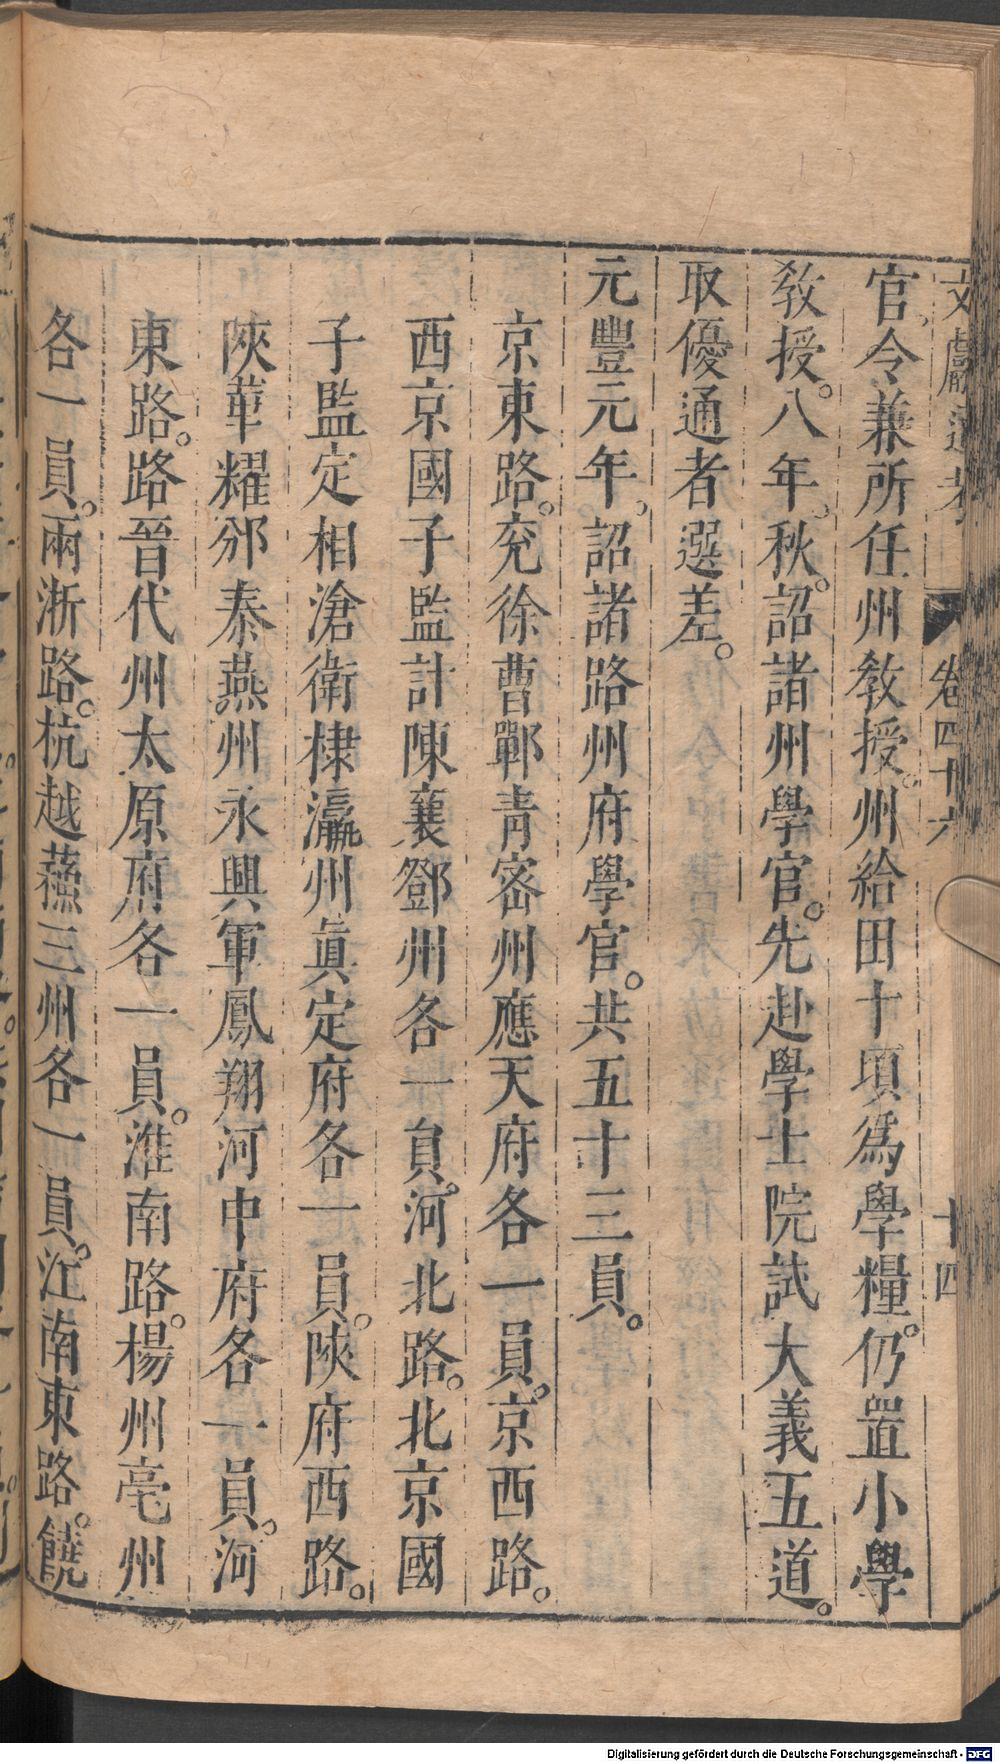 文獻通考 卷四十六 十四
官令兼所任州敎授。州給田十頃爲學糧。仍置小學
敎授。八年秋。詔諸州學官。先赴學士院試大義五道。
取優通者選差。
元豐元年。詔諸路州府學官。共五十三員。
京東路。兖徐曹鄆靑密州應天府各一員。京西路。
西京國子監計陳襄鄧州各一員。河北路。北京國
子監定相滄衛棣瀛州眞定府各一員。陝府西路。
陝華耀邠秦燕州永興軍鳳翔河中府各一員。河
東路。路晉代州太原府各一員。淮南路。楊州亳州
各一員。兩浙路。杭越蘇三州各一員。江南東路。饒
Digitalisierung gefördert durch die Deutsche Forschungsgemeinschaft - DFG